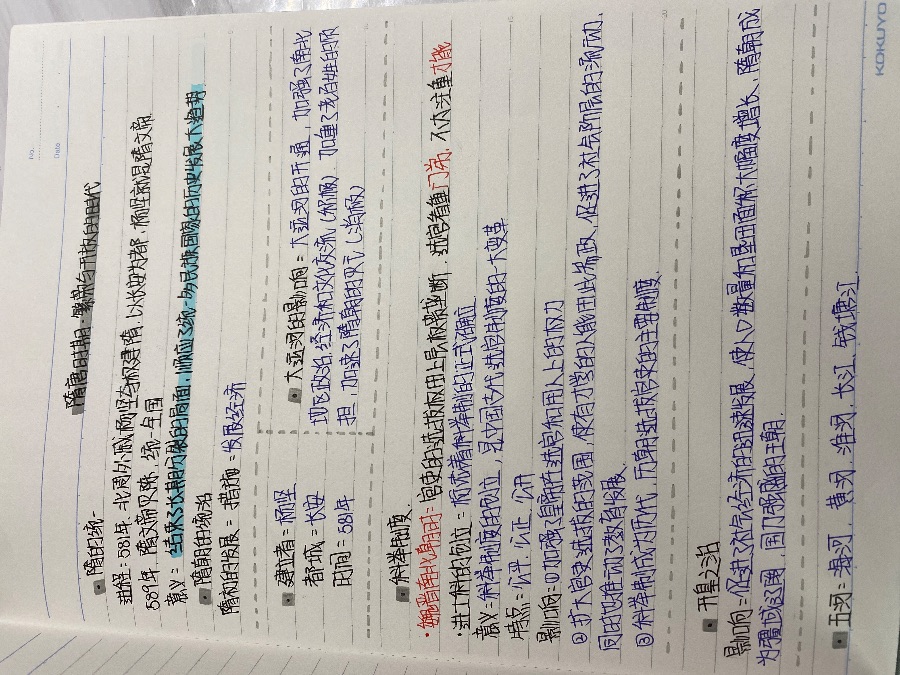 No.
Date
隋唐时期：繁荣与开放的时代
隋的统一
进程：581年 北周外戚杨坚夺权建隋，以长安为都，杨坚就是隋文帝
589年 隋文帝灭陈，统一全国
意义：结束了长期的分裂的局面，顺应了统一多民族国家的历史发展大趋势
隋朝的统治
隋初的发展：措施：发展经济
建立者：杨坚
都城：长安
时间：581年
大运河的影响：大运河的开通，加强了南北
地区政治，经济和文化交流（积极）加重了老百姓的负
担，加速了隋朝的灭亡（消极）
科举制度
魏晋南北朝时：官吏的选拔权用上层权贵垄断，选官看重门第，不太注重才能
进士科的创立：标志着科举制的正式确立
意义：科举制度的创立，是中国古代选官制度的一大变革
特点：公平 公正 公开
影响：①加强了皇帝在选官和用人上的权力
②扩大官吏选拔的范围，使有才学的人能用此参政，促进了社会阶层的流动，
同时也推动了教育发展
③科举制成为历代，历朝选拔官吏的主要制度
开皇之治
影响：促进了社会经济的迅速发展，使人口数量和垦田面积大幅度增长，隋朝成
为疆域辽阔，国力强盛的王朝
五河：海河，黄河 淮河，长江，钱塘江
KOKUYO